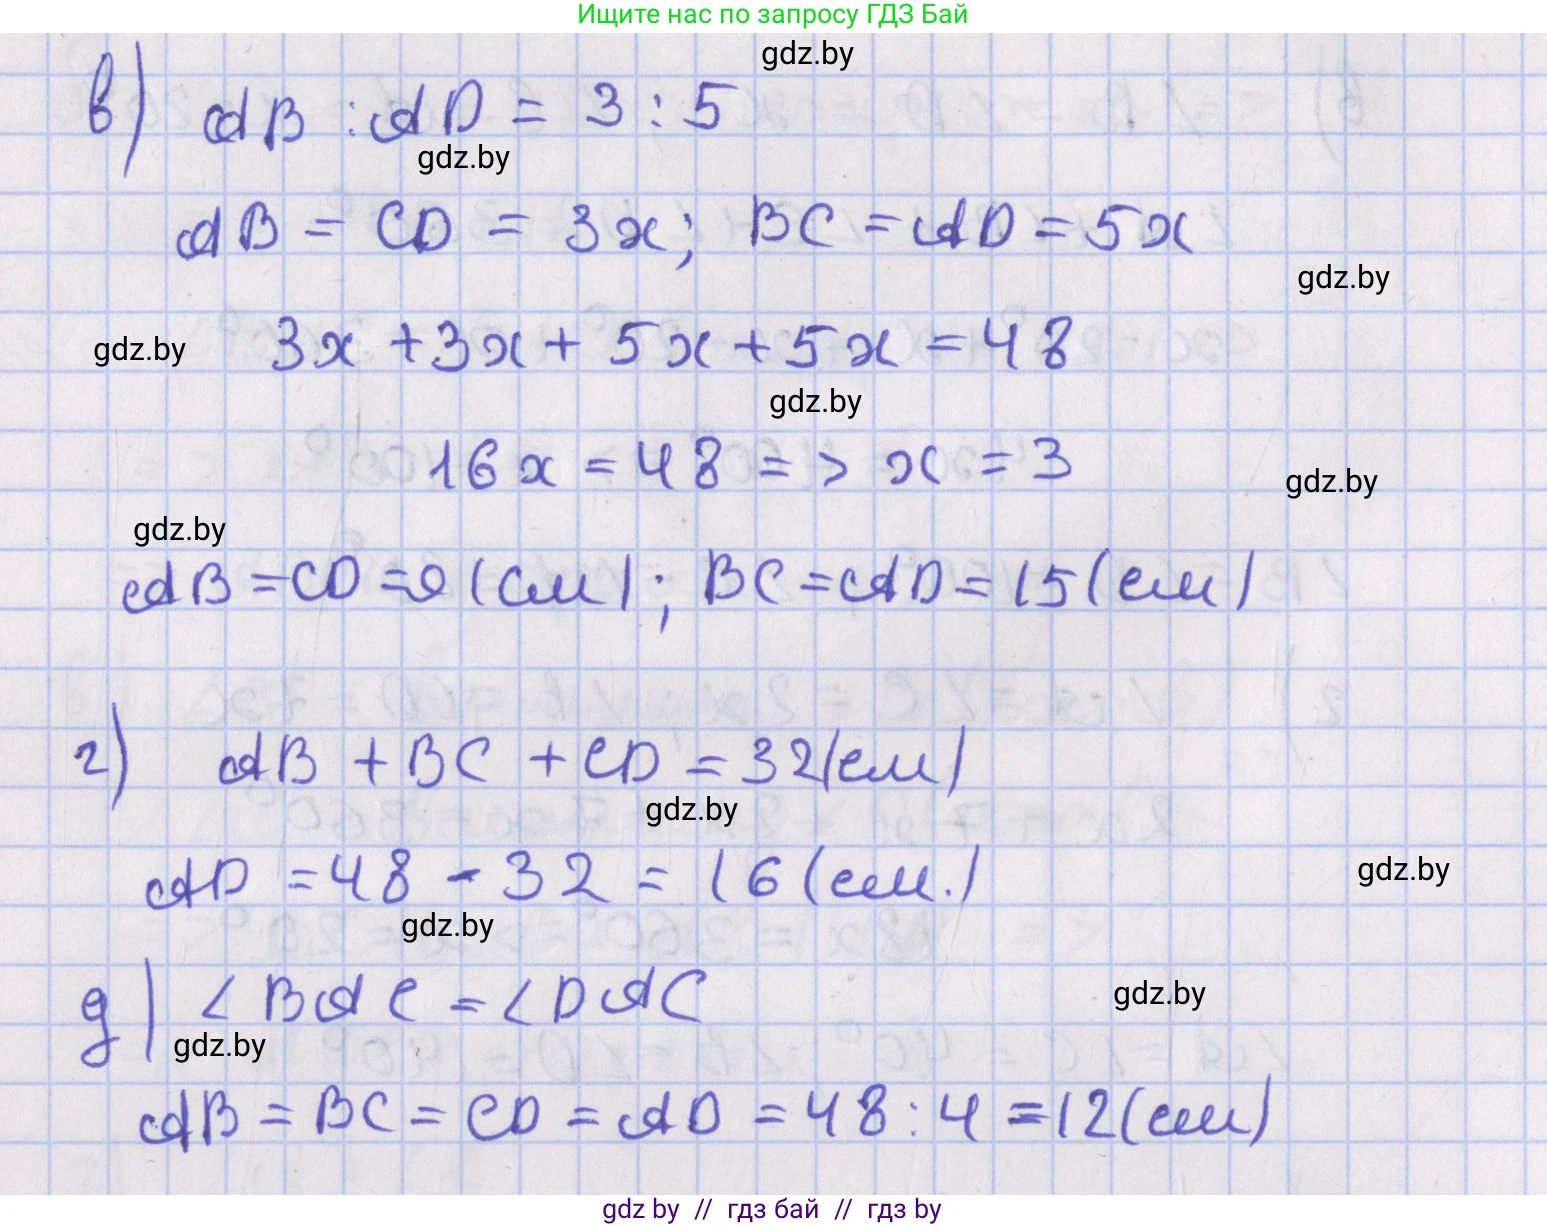 Ищите нас по запросу ГДЗ Бай
gdz.by
в) AB : AD = 3 : 5
gdz.by
AB = CD = 3x; BC = AD = 5x
gdz.by
3x + 3x + 5x + 5x = 48
gdz.by
gdz.by
16x = 48 => x = 3
gdz.by
gdz.by
AB = CD = 9 (см); BC = AD = 15 (см)
г) AB + BC + CD = 32 (см)
gdz.by
AD = 48 - 32 = 16 (см.)
gdz.by
gdz.by
д) ∠BAC = ∠DAC
gdz.by
gdz.by
AB = BC = CD = AD = 48 : 4 = 12 (см)
gdz.by // гдз бай // гдз by